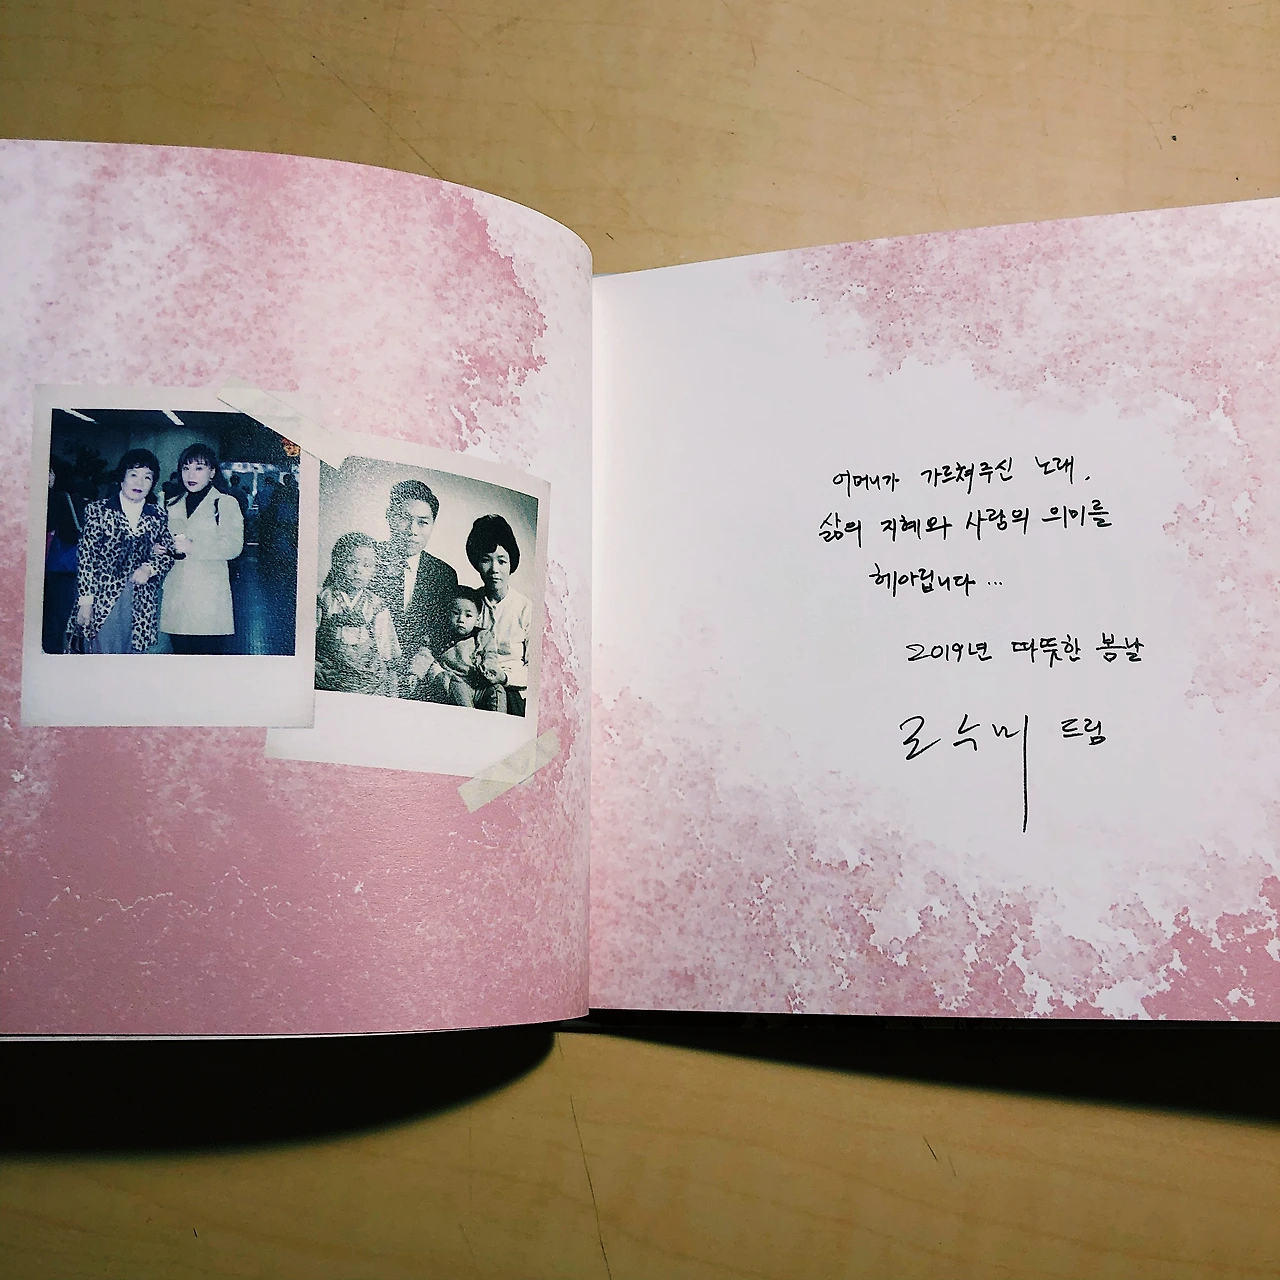 어머니가 가르쳐주신 노래,
삶의 지혜와 사랑의 의미를
헤아립니다...
2019년 따뜻한 봄날
조수미 드림